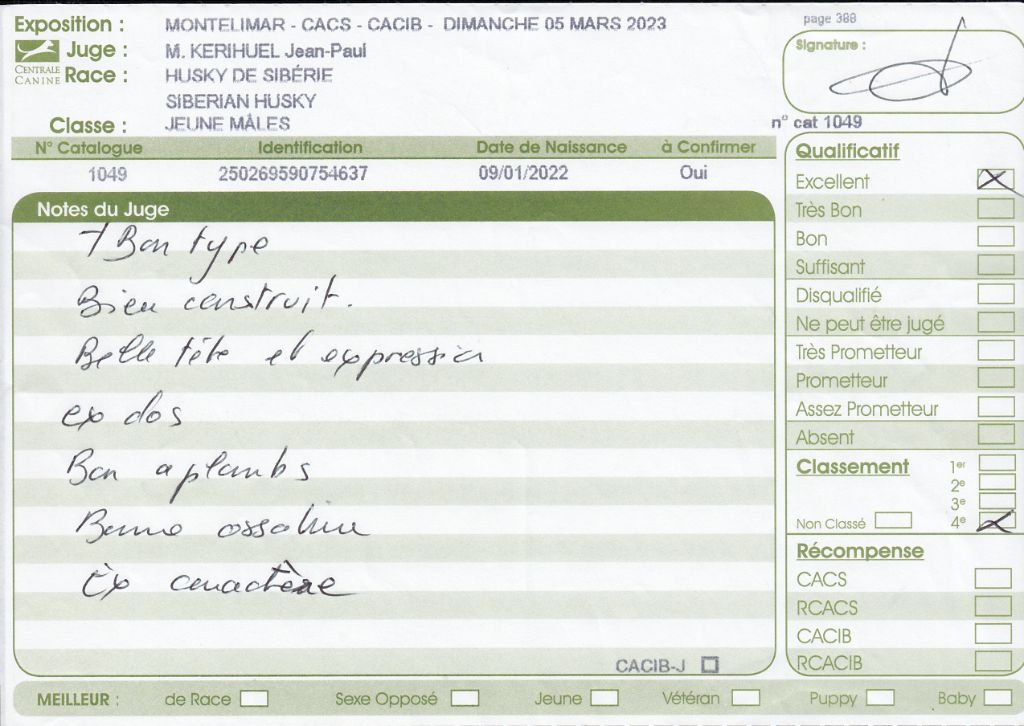 Exposition : MONTELIMAR - CACS - CACIB - DIMANCHE 05 MARS 2023
page 388
CENTRALE CANINE
Juge : M. KERIHUEL Jean-Paul
Signature :
Race : HUSKY DE SIBÉRIE
SIBERIAN HUSKY
Classe : JEUNE MÂLES
n° cat 1049
N° Catalogue Identification Date de Naissance à Confirmer
1049 250269590754637 09/01/2022 Oui
Notes du Juge
T Bon type
Bien construit.
Belle tête et expression
ex dos
Bon aplombs
Bonne ossature
Ex caractère
CACIB-J
Qualificatif
Excellent X
Très Bon
Bon
Suffisant
Disqualifié
Ne peut être jugé
Très Prometteur
Prometteur
Assez Prometteur
Absent
Classement 1er
2e
3e
Non Classé 4e X
Récompense
CACS
RCACS
CACIB
RCACIB
MEILLEUR : de Race Sexe Opposé Jeune Vétéran Puppy Baby